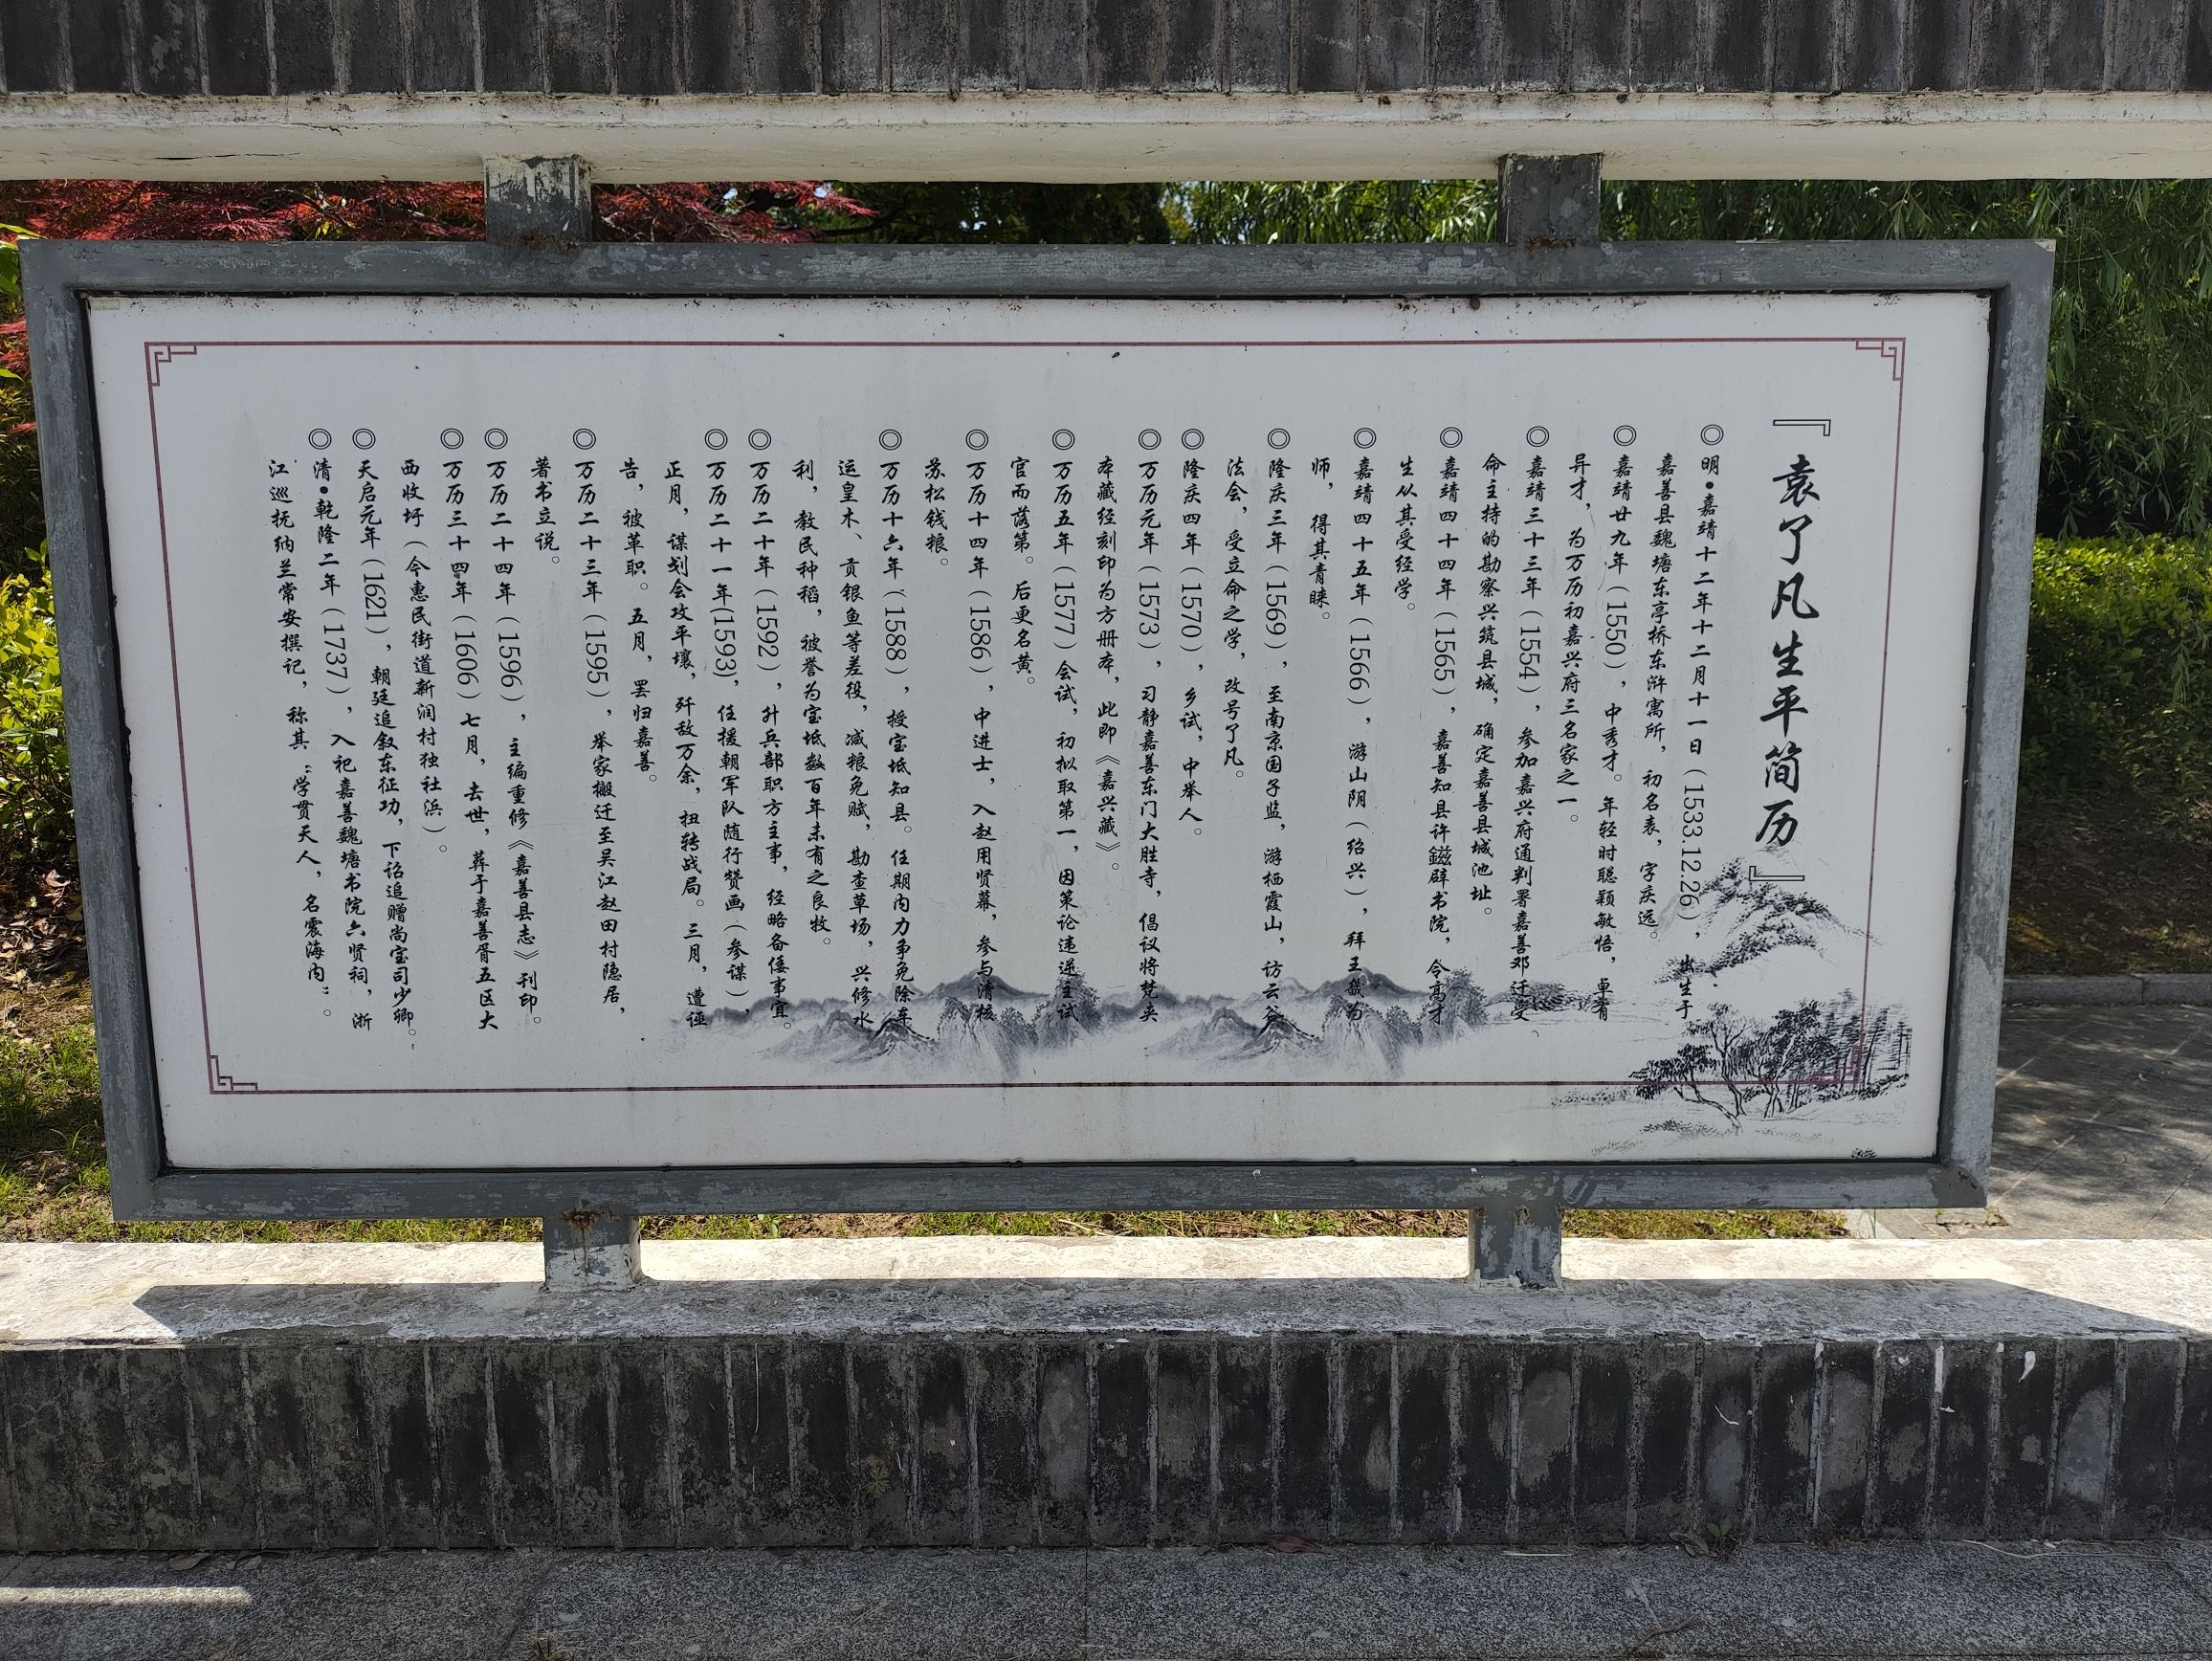 『袁了凡生平简历』
◎明·嘉靖十二年十二月十一日（1533.12.26），出生于
嘉善县魏塘东亭桥东浒寓所，初名表，字庆远。
◎嘉靖廿九年（1550），中秀才。年轻时聪颖敏悟，卓有
异才，为万历初嘉兴府三名家之一。
◎嘉靖三十三年（1554），参加嘉兴府通判署嘉善邓迁受
命主持的勘察兴筑县城，确定嘉善县城池址。
◎嘉靖四十四年（1565），嘉善知县许鎡辟书院，令高才
生从其受经学。
◎嘉靖四十五年（1566），游山阴（绍兴），拜王畿为
师，得其青睐。
◎隆庆三年（1569），至南京国子监，游栖霞山，访云谷
法会，受立命之学，改号了凡。
◎隆庆四年（1570），乡试，中举人。
◎万历元年（1573），习静嘉善东门大胜寺，倡议将梵夹
本藏经刻印为方册本，此即《嘉兴藏》。
◎万历五年（1577）会试，初拟取第一，因策论违逆主试
官而落第。后更名黄。
◎万历十四年（1586），中进士，入赵用贤幕，参与清核
苏松钱粮。
◎万历十六年（1588），授宝坻知县。任期内力争免除车
运皇木、贡银鱼等差役，减粮免赋，勘查草场，兴修水
利，教民种稻，被誉为宝坻数百年未有之良牧。
◎万历二十年（1592），升兵部职方主事，经略备倭事宜。
◎万历二十一年(1593)，任援朝军队随行赞画（参谋），
正月，谋划会攻平壤，歼敌万余，扭转战局。三月，遭诬
告，被革职。五月，罢归嘉善。
◎万历二十三年（1595），举家搬迁至吴江赵田村隐居，
著书立说。
◎万历二十四年（1596），主编重修《嘉善县志》刊印。
◎万历三十四年（1606）七月，去世，葬于嘉善胥五区大
西收圩（今惠民街道新润村独社浜）。
◎天启元年（1621），朝廷追叙东征功，下诏追赠尚宝司少卿。
◎清·乾隆二年（1737），入祀嘉善魏塘书院六贤祠，浙
江巡抚纳兰常安撰记，称其“学贯天人，名震海内”。